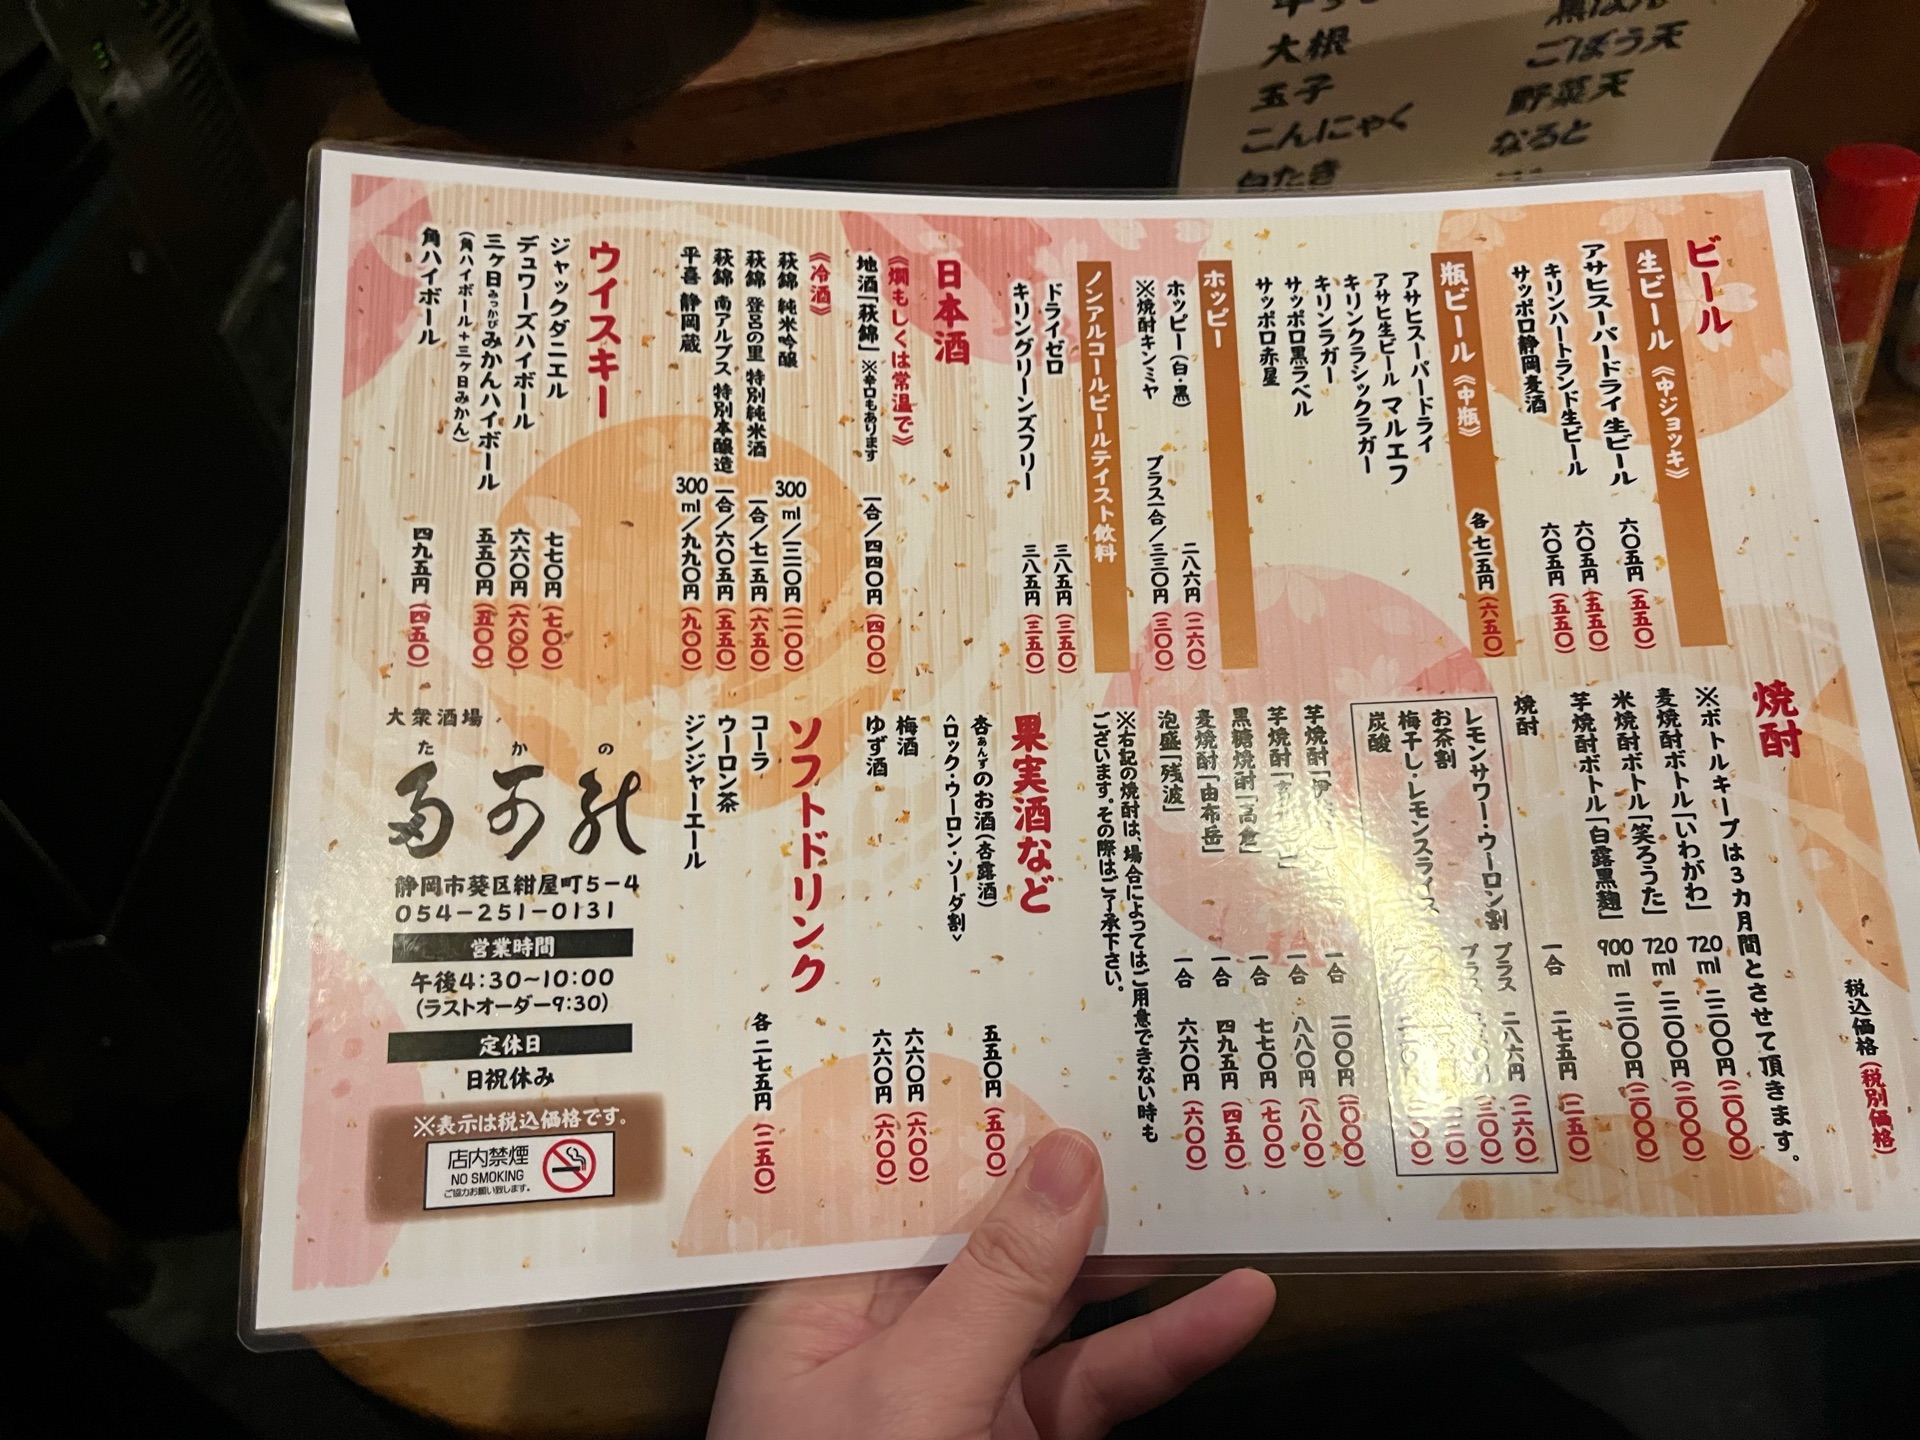 大根
玉子
こんにゃく
白たき
ごぼう天
野菜天
なると
ビール
生ビール《中ジョッキ》
アサヒスーパードライ生ビール 六〇五円(五五〇)
キリンハートランド生ビール 六〇五円(五五〇)
サッポロ静岡麦酒 六〇五円(五五〇)
瓶ビール《中瓶》 各 七一五円(六五〇)
アサヒスーパードライ
アサヒ生ビール マルエフ
キリンクラシックラガー
キリンラガー
サッポロ黒ラベル
サッポロ赤星
ホッピー
ホッピー(白・黒) 二八六円(二六〇)
※焼酎キンミヤ プラス一合/三三〇円(三〇〇)
ノンアルコールビールテイスト飲料
ドライゼロ 三八五円(三五〇)
キリングリーンズフリー 三八五円(三五〇)
日本酒
《燗もしくは常温で》
地酒「萩錦」※辛口もあります 一合/四四〇円(四〇〇)
《冷酒》
萩錦 純米吟醸 300ml/
萩錦 登呂の里 特別純米酒 一合/七一五円(六五〇)
萩錦 南アルプス 特別本醸造 一合/六〇五円(五五〇)
平喜 静岡蔵 300ml/九九〇円(九〇〇)
ウイスキー
ジャックダニエル 七七〇円(七〇〇)
デュワーズハイボール 六六〇円(六〇〇)
三ヶ日みっかびみかんハイボール 五五〇円(五〇〇)
(角ハイボール+三ヶ日みかん)
角ハイボール 四九五円(四五〇)
税込価格(税別価格)
焼酎
※ボトルキープは3カ月間とさせて頂きます。
麦焼酎ボトル「いわがわ」 720ml 二二〇〇円(二〇〇〇)
米焼酎ボトル「笑ろうた」 720ml 二二〇〇円(二〇〇〇)
芋焼酎ボトル「白露黒麹」 900ml 二二〇〇円(二〇〇〇)
焼酎 一合 二七五円(二五〇)
レモンサワー・ウーロン割 プラス 二八六円(二六〇)
お茶割 プラス (三〇〇)
梅干し・レモンスライス
炭酸
芋焼酎 一合
芋焼酎 一合 八八〇円(八〇〇)
黒糖焼酎「高倉」 一合 七七〇円(七〇〇)
麦焼酎「由布岳」 一合 四九五円(四五〇)
泡盛「残波」 一合 六六〇円(六〇〇)
※右記の焼酎は、場合によってはご用意できない時も
ございます。その際はご了承下さい。
果実酒など
杏あんずのお酒(杏露酒) 五五〇円(五〇〇)
<ロック・ウーロン・ソーダ割>
梅酒 六六〇円(六〇〇)
ゆず酒 六六〇円(六〇〇)
ソフトドリンク
コーラ 各 二七五円(二五〇)
ウーロン茶
ジンジャーエール
大衆酒場
たかの
多可能
静岡市葵区紺屋町5-4
054-251-0131
営業時間
午後4:30~10:00
(ラストオーダー9:30)
定休日
日祝休み
※表示は税込価格です。
店内禁煙
NO SMOKING
ご協力お願い致します。